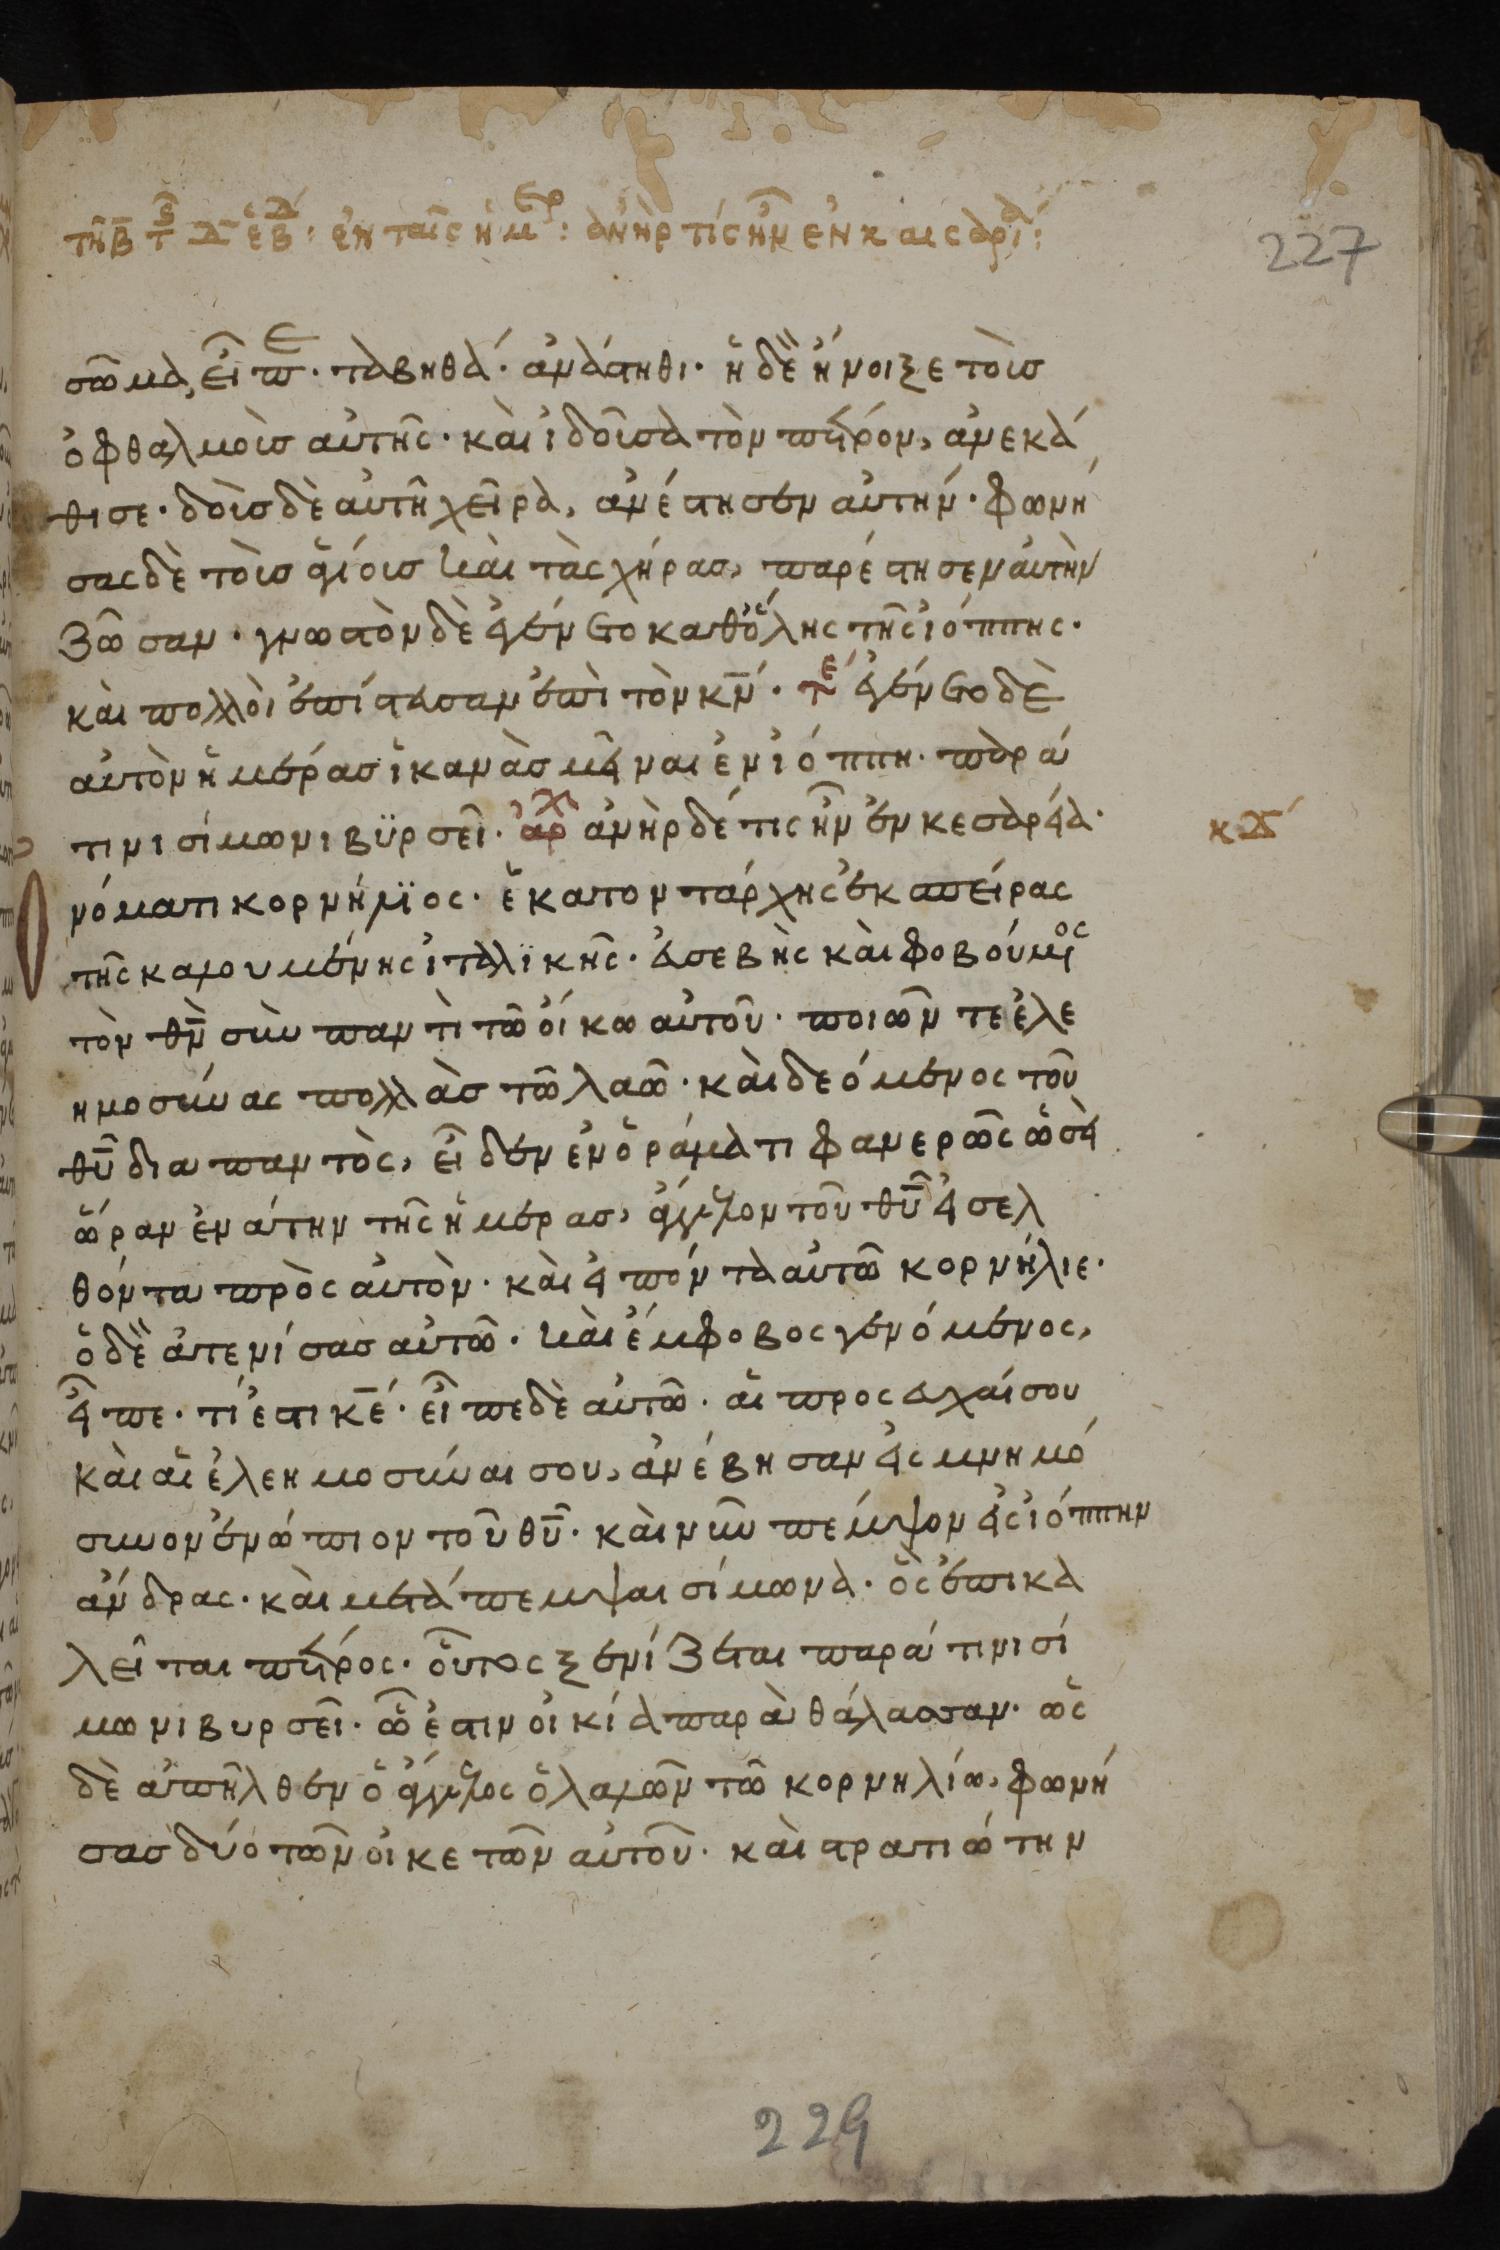 τῆ β τῆς δ ἑβδ: ἐν ταῖς ἡμερ: ἀνήρ τίς ἦν ἐν καισαρία:
227
σῶμα, εἶπε. ταβηθά. ἀνάστηθι. ἡ δὲ ἤνοιξε τοὺσ
ὀφθαλμοὺσ αὐτῆς. καὶ ἰδοῦσα τὸν πέτρον, ἀνεκά
θισε. δοὺσ δὲ αὐτῆ χεῖρα, ἀνέστησεν αὐτήν. φωνή
σας δὲ τοὺσ ἁγίουσ καὶ τὰς χήρασ, παρέστησεν αὐτὴν
ζῶσαν. γνωστὸν δὲ ἐγένετο καθ' ὅλης τῆς ἰόππης.
καὶ πολλοὶ ἐπίστευσαν ἐπὶ τὸν κν̄. τε ἐγένετο δὲ
αὐτὸν ἡμέρασ ἱκανὰσ μεῖναι ἐν ἰόππη. παρά
τινι σίμωνι βϋρσεῖ. ἀρχ ἀνὴρ δέ τις ἦν ἐν κεσαρεία.
κδ
ὀνόματι κορνήλϊος. ἑκατοντάρχης ἐκ σπείρας
τῆς καλουμένης ἰταλϊκῆς. εὐσεβὴς καὶ φοβούμενος
τὸν θν̄ σὺν παντὶ τῶ οἴκω αὐτοῦ. ποιῶν τε ἐλε
ημοσύνας πολλὰσ τῶ λαῶ. καὶ δεόμενος τοῦ
θῡ διαπαντὸς, εἶδεν ἐν ὁράματι φανερῶς ὡσεὶ
ὥραν ἐνάτην τῆς ἡμέρασ, ἄγγελον τοῦ θῡ εἰσελ
θόντα πρὸς αὐτὸν. καὶ εἰπόντα αὐτῶ κορνήλιε.
ὁ δὲ ἀτενίσασ αὐτῶ. καὶ ἔμφοβος γενόμενος,
εἶπε. τί ἐστι κε̄. εἶπε δὲ αὐτῶ. αἱ προσευχαί σου
καὶ αἱ ἐλεημοσύναι σου, ἀνέβησαν εἰς μνημό
συνον ἐνώπιον τοῦ θῡ. καὶ νῦν πέμψον εἰς ἰόππην
ἄνδρας. καὶ μετάπεμψαι σίμωνα. ὃς ἐπικα
λεῖται πέτρος. οὗτος ξενίζεται παρά τινι σί
μωνι βυρσεῖ. ὧ ἐστιν οἰκία παρὰ θάλασσαν. ὡς
δὲ ἀπῆλθεν ὁ ἄγγελος ὁ λαλῶν τῶ κορνηλίω, φωνή
σασ δύο τῶν οἰκετῶν αὐτοῦ. καὶ στρατιώτην
229